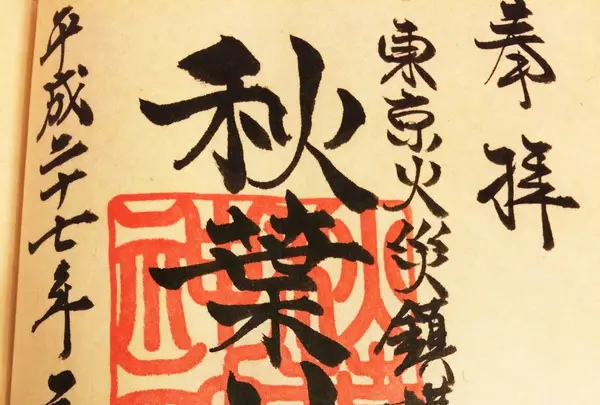 奉拝
東京火災鎮
秋葉
平成二十七年